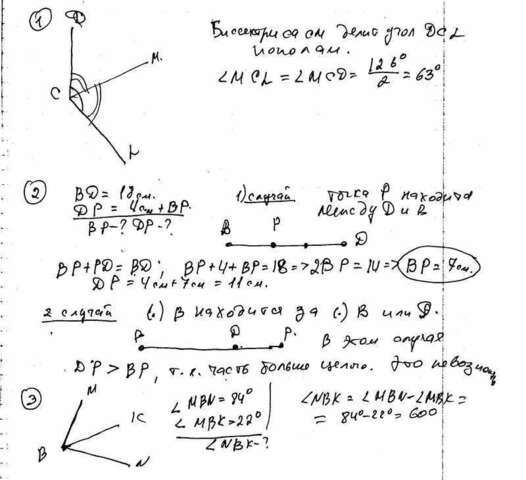 1
D
M.
C
L
Биссектриса см делит угол DCL
пополам.
∠MCL = ∠MCD = 126°/2 = 63°
2
BD = 18см.
DP = 4см + BP.
BP-? DP-?
1) случай точка P находится
между D и B
B P D
BP + PD = BD; BP + 4 + BP = 18 => 2BP = 14 => BP = 7см.
DP = 4см + 7см = 11см.
2 случай (.) B находится за (.) B или D.
D P.
в этом случае
DP > BP, т.к. часть больше целого. Это невозмож
3
M
K
B
N
∠MBN = 84°
∠MBK = 22°
∠NBK-?
∠NBK = ∠MBN - ∠MBK =
= 84° - 22° = 600